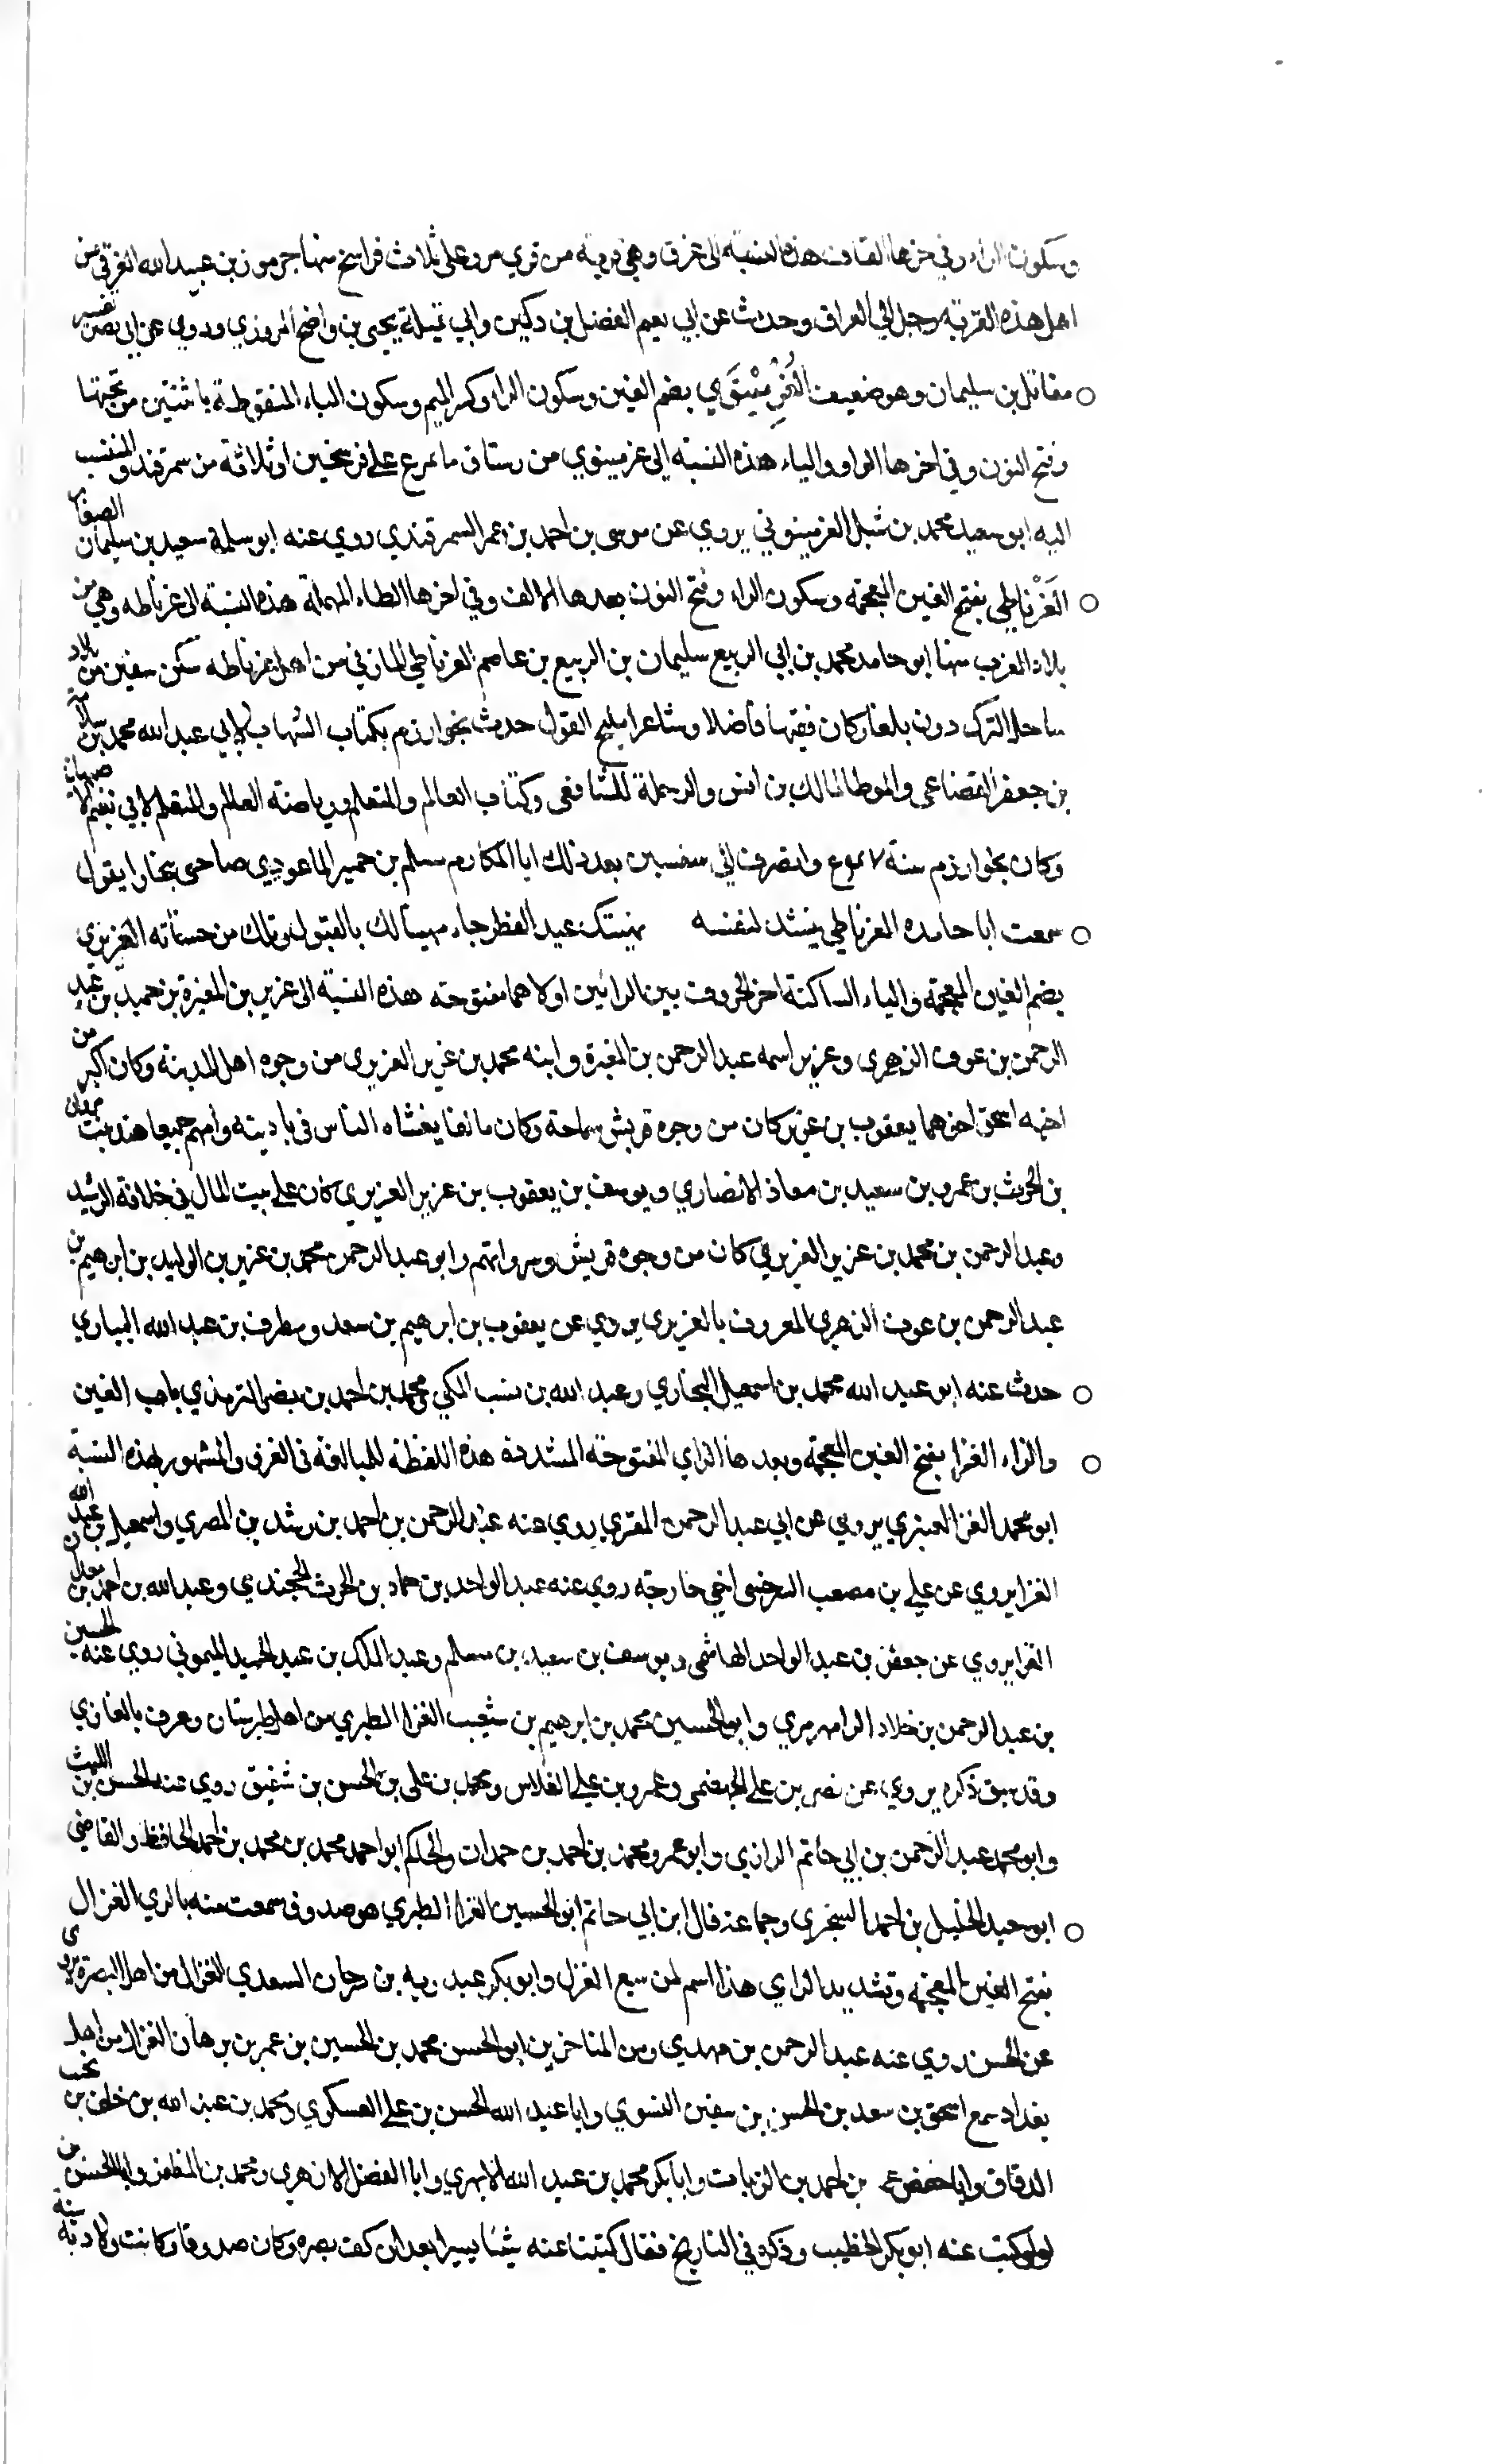 وسكون الراء وفي اخرها القاف هذه النسبة الى غرق وهي قرية من قري مرو على ثلاث فراسخ منها جرموز بن عبيد الله الغرقي من
اهل هذه القرية رحل الى العراق وحدث عن ابي نعيم الفضل بن دكين وابي تميلة يحيى بن واضح المروزي وروي عن ابي نصر تفسير
مقاتل بن سليمان وهو ضعيف الغُرْمِيْنَوي بضم الغين وسكون الراء وكسر الميم وسكون الياء المنقوطة باثنتين من تحتها
وفتح النون وفي اخرها الواو والياء هذه النسبة الى غرمينوي من رستاق مايمرغ على فرسخين او ثلاثة من سمرقند والمنتسب
اليه ابو سعيد محمد بن شبل الغرمينوني يروي عن موسى بن احمد بن عمر السمرقندي روي عنه ابو سلمة سعيد بن سليمان الصفار
الغَرْناطي بفتح الغين المعجمة وسكون الراء وفتح النون بعدها الالف وفي اخرها الطاء المهملة هذه النسبة الى غرناطه وهي من
بلاد الغرب منها ابو حامد محمد بن ابي الربيع سليمان بن الربيع بن عاصم الغرناطي المازني من اهل غرناطه سكن سقسين من بلاد
ساحل الترك دون بلغار كان فقيها فاضلا وشاعرا مليح القول حدث بخوارزم بكتاب الشهاب لابي عبد الله محمد بن سلامة
بن جعفر القضاعي والموطا لمالك بن انس والرحلة للشافعي وكتاب العالم والمتعلم ورياضة العالم والمتعلم لابي نعيم الاصبهاني
وكان بخوارزم سنة وانصرف الى سقسين بعد ذلك ابا المكارم مسلم بن حمير صاحبي ببخارا يقول
سمعت ابا حامده الغرناطي ينشد لنفسه يهنيك عيد الفطر جاء مهنيا لك بالقبول وتلك من حسناته الغريري
بضم الغين المعجمة والياء الساكنة اخر الحروف بين الرائين اولاهما مفتوحة هذه النسبة الى غرير بن المغيرة بن حميد بن عبد
الرحمن بن عوف الزهري وغرير اسمه عبد الرحمن بن المغيرة وابنه محمد بن غرير الغريري من وجوه اهل المدينة وكان اكبر من
اخيه اسحق اخوهما يعقوب بن غرير كان من وجوه قريش سماحة وكان مالفا يغشاه الناس في باديته وامهم جميعا هند بنت مروان
بن الحرث بن عمرو بن سعيد بن معاذ الانصاري ويوسف بن يعقوب بن غرير الغريري كان على بيت المال في خلافة الرشيد
وعبد الرحمن بن محمد بن غرير الغريري كان من وجوه قريش وسرواتهم وابو عبد الرحمن محمد بن غرير بن الوليد بن ابرهيم بن
عبد الرحمن بن عوف الزهري المعروف بالغريري يروي عن يعقوب بن ابرهيم بن سعد ومطرف بن عبد الله اليساري
حدث عنه ابو عبد الله محمد بن اسمعيل البخاري وعبد الله بن شبيب المكي ومحمد بن احمد بن نصر الترمذي باب الغين
والزاء الغزا بفتح الغين المعجمة وبعدها الزاي المفتوحة المشددة هذه اللفظة للمبالغة في الغزو والمشهور بهذه النسبة
ابو محمد الغزا العنبري يروي عن ابي عبد الرحمن المقري روي عنه عبد الرحمن بن احمد بن رشدين المصري واسمعيل بن عبد الله
الغزا يروي عن علي بن مصعب السرخسي اخي خارجه روي عنه عبد الواحد بن حماد بن الحرث الخجندي وعبد الله بن احمد بن معدان
الغزا يروي عن جعفر بن عبد الواحد الهاشمي ويوسف بن سعيد بن مسلم وعبد الملك بن عبد الحميد الميموني روي عنه الحسن
بن عبد الرحمن بن خلاد الرامهرمزي وابو الحسين محمد بن ابرهيم بن شعيب الغزا الطبري من اهل طبرستان وعرف بالغازي
وقد سبق ذكره يروي عن نصر بن علي الجهضمي وعمرو بن علي الفلاس ومحمد بن علي بن الحسن بن شقيق روي عنه الحسن بن الليث
وابو محمد عبد الرحمن بن ابي حاتم الرازي وابو عمرو محمد بن احمد بن حمدان والحاكم ابو احمد محمد بن محمد بن احمد الحافظ والقاضي
ابو سعيد الخليل بن احمد السجزي وجماعة قال ابن ابي حاتم ابو الحسين الغزا الطبري هو صدوق سمعت منه بالري الغزال
بفتح الغين المعجمة وتشديد الزاي هذا اسم لمن يبيع الغزل وابو بكر عبد ربه بن السعدي الغزال من اهل البصرة يروي
عن الحسن روي عنه عبد الرحمن بن مهدي ومن المتاخرين ابو الحسن محمد بن الحسين بن عمر بن برهان الغزال من اهل
بغداد سمع اسحق بن سعد بن الحسن بن سفين النسوي وابا عبد الله الحسن بن علي العسكري ومحمد بن عبد الله بن خلف بن بخيت
الدقاق وابا حفص بن احمد بن الزيات وابا بكر محمد بن عبد الله الابهري وابا الفضل الازهري ومحمد بن المظفر وابا الحسن بن
لولو كتب عنه ابو بكر الخطيب وذكره في التاريخ فقال كتبنا عنه شيئا يسيرا بعد ان كف بصره وكان صدوقا وكانت ولادته سنة